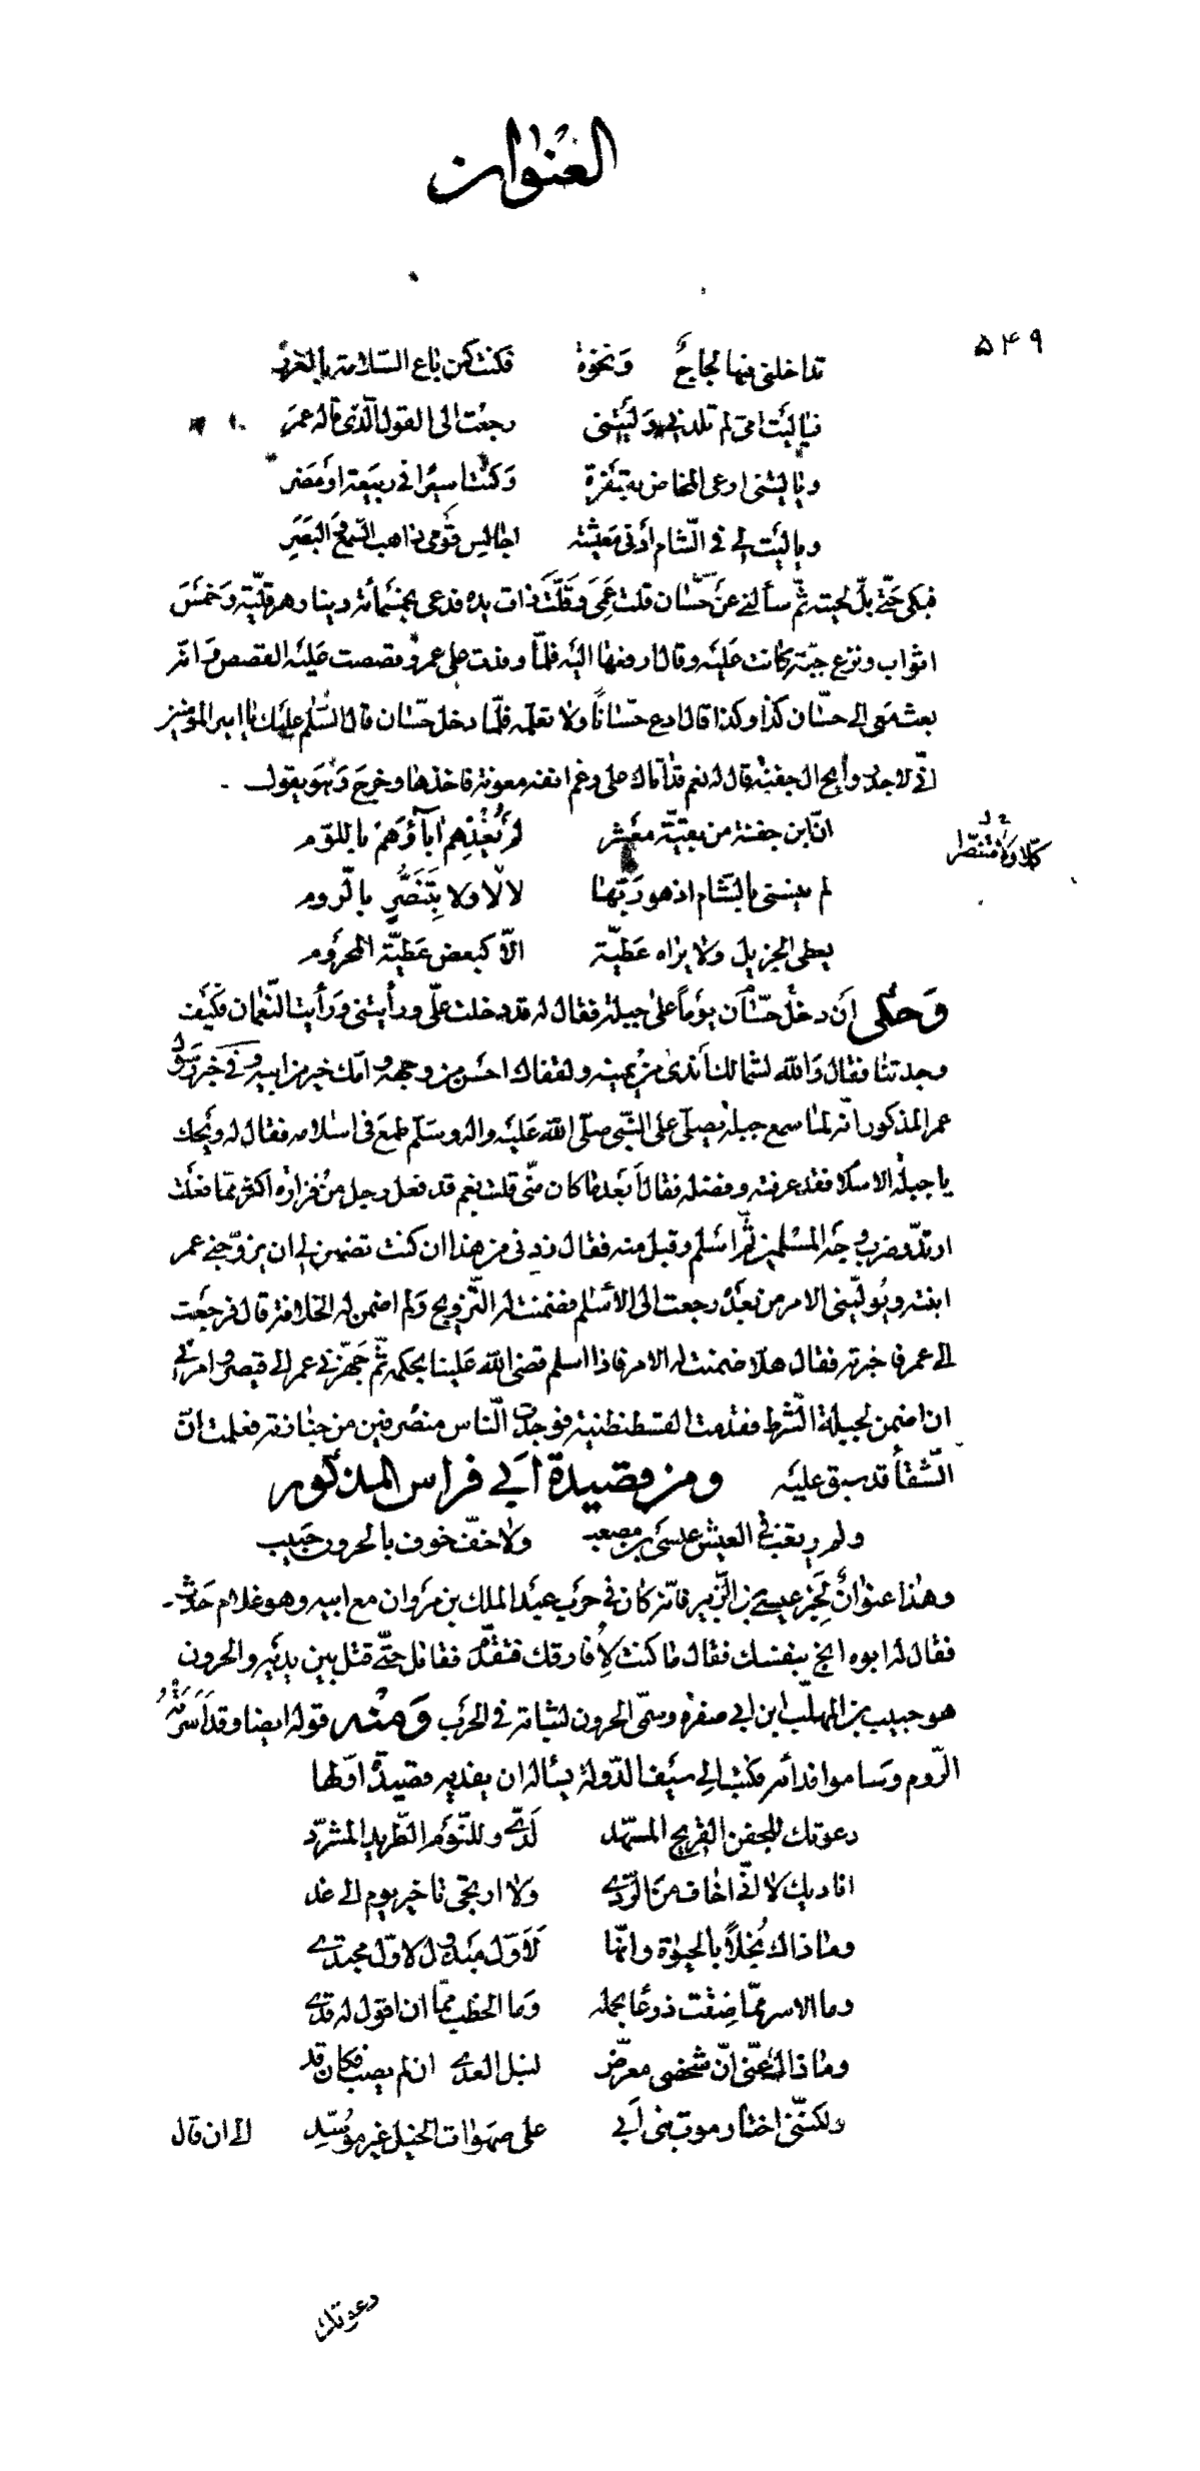 العنوان
٥٤٩
تداخلنى فيها لجاجٌ ونخوة فكنت كمن باع السّلامة بالغرر
فياليت امى لم تلدنى وليتنى رجعت الى القول الّذى قاله عمر
وياليتنى ارعى المخاض بقفرة وكنت اسيرا فى ربيعة او مضر
وياليت لى فى الشّام أدنى معيشة اجالس قومى ذاهب السّمع والبصر
فبكى حتّى بلّ لحيته ثمّ سألنى عن حسّان قلت عمى وقلّت ذات يده فدعى بخمسمأئة دينار هرقليّة وخمس
اثواب ونزع جبّة كانت عليه وقال ادفعها اليه فلمّا وفدت على عمر وقصصت عليه القصص وانّه
بعث معى الى حسّان كذا وكذا قال ادع حسّاناً ولا تعلمه فلمّا دخل حسّان قال السّلم عليك يا امير المومنين
انّى لاجد روايح ال جفنة قال له نعم قد اتاك على رغم انفه معونة فاخذها وخرج وهو يقول
انّ ابن جفنة من بقيّة معشر لم يُغذِهم اباؤهم باللّوم
كلّا ولا متنصّرا
لم ينسنى بالشّام اذ هو ربّها لا لا ولا بتنصّرٍ بالرّوم
يعطى الجزيل ولا يراه عطيّة الّا كبعض عطيّة المحروم
وحكى أن دخل حسّان يوماً على جبلة فقال له قد دخلت علىّ ورأيتنى ورأيت النّعمان فكيف
وجدتنا فقال والله لشمالك أندى من يمينه ولقفاك احسن من وجهه وامّك خير من ابيه وفى خبر رسول
عمر المذكور انّه لمّا سمع جبلة يصلّى على النّبى صلّى الله عليه واله وسلّم طمع فى اسلامه فقال له ويحك
يا جبلة الاسلام فقد عرفته وفضله فقال أبعد ما كان منّى قلت نعم قد فعل رجل من فزارة اكثر ممّا فعلت
ارتدّ وضرب وجه المسلمين ثمّ اسلم وقبل منه فقال زدنى من هذا ان كنت تضمن لى ان يزوّجنى عمر
ابنته ويُولّينى الامر من بعده رجعت الى الأسلم فضمنت له التّزويج ولم اضمن له الخلافة قال فرجعت
الى عمر فاخبرته فقال هلّا ضمنت له الامر فاذا اسلم قضى الله علينا بحكمه ثمّ جهّزنى عمر الى قيصر وامرنى
ان اضمن لجبلة الشّرط فقدمت القسطنطنية فوجدت النّاس منصرفين من جنازته فعلمت انّ
الشّقأ قد سبق عليه ومن قصيدة ابى فراس المذكور
ولم يرغب فى العيش عيسى بن مصعب ولا خفّ خوف بالحرون حبيب
وهذا عنوانٌ لخبر عيسى بن الزّبير فانّه كان فى حرب عبد الملك بن مروان مع ابيه وهو غلام حدث
فقال له ابوه انج بنفسك فقال ما كنت لأفارقك فتقدّم فقاتل حتّى قتل بين يديه والحرون
هو حبيب بن المهلّب ابن ابى صفرة وسمّى الحرون لثباته فى الحرب ومنه قوله ايضا وقد اسرته
الرّوم وساموا فدائه فكتب الى سيف الدّولة يسأله ان يفديه قصيدةً اوّلها
دعوتك للجفن القريح المسهّد لدىّ وللنّوم الطّريد المشرّد
اناديك لا انّى اخاف من الرّدى ولا ارتجى تاخير يوم الى غد
وما ذاك بُخلاً بالحيوة وانّها لاوّل مبذول لاوّل مجتدى
وما الاسر ممّا ضِقت ذرعًا بحمله وما الخطب ممّا ان اقول له قدى
وما زال عنّى انّ شخصى معرّض لنبل العدى ان لم يصب فكان قد
ولكنّنى اختار موت بنى أبى على صهوات الخيل غير موسّد الى ان قال
دعوتك